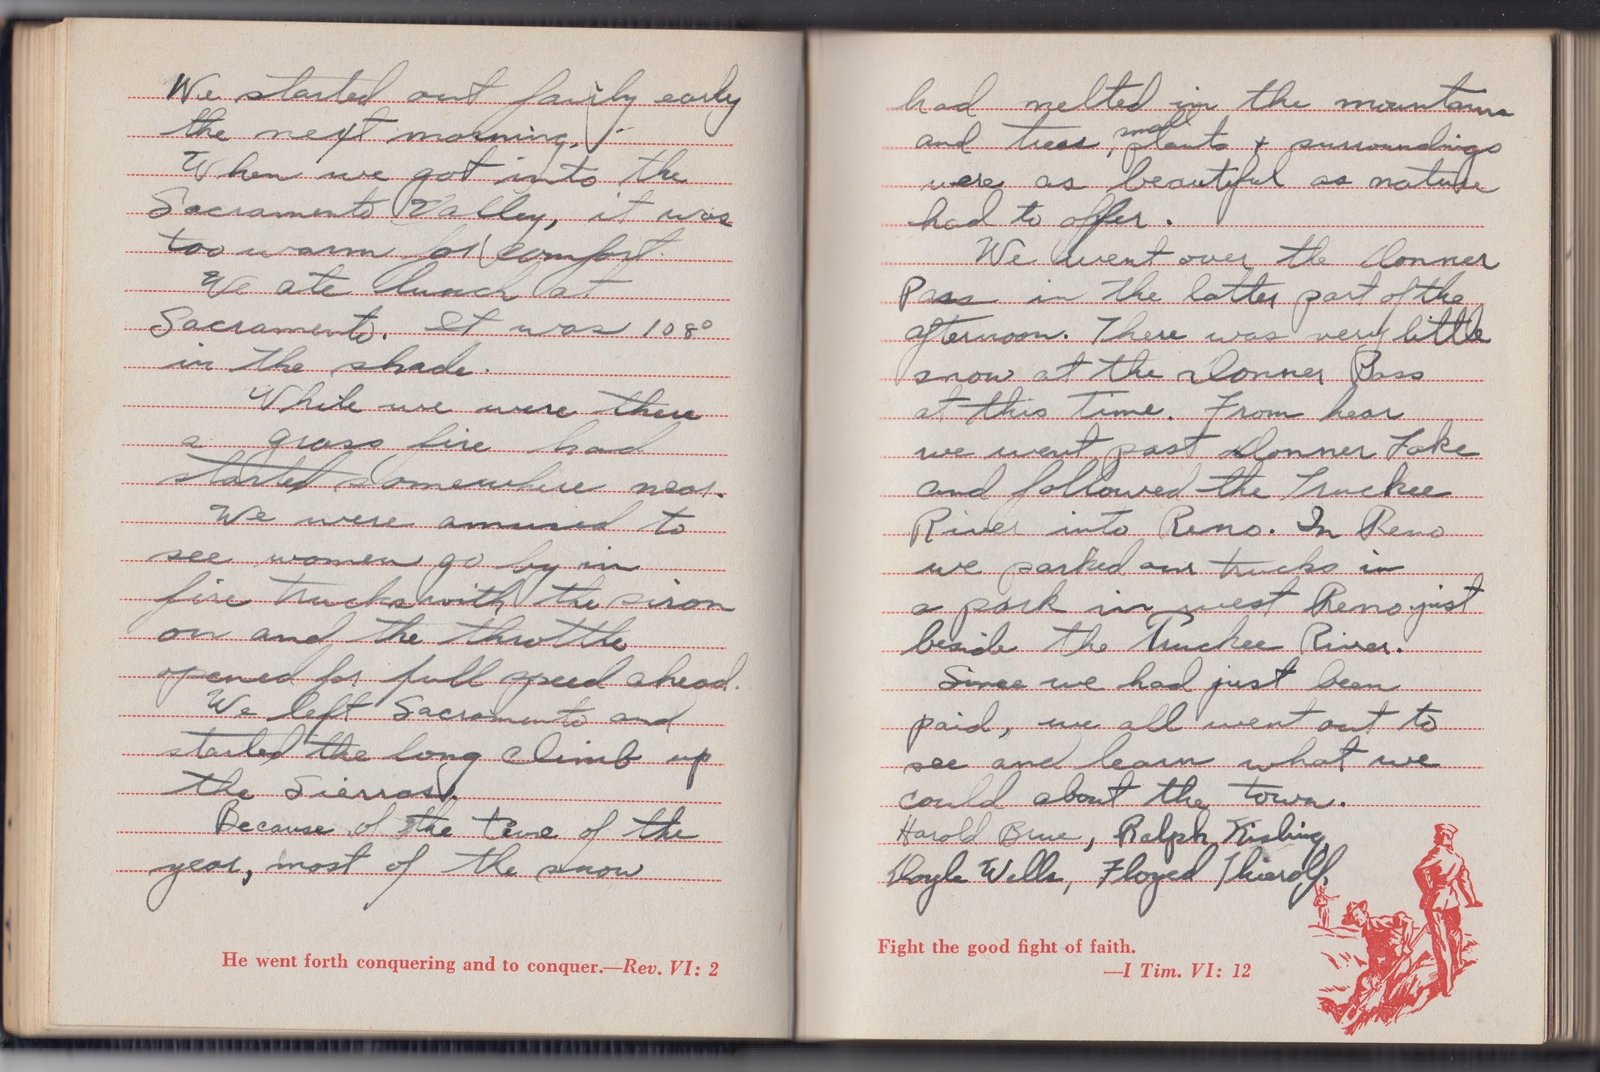 We started out fairly early
the next morning.
When we got into the
Sacramento Valley, it was
too warm for comfort.
We ate lunch at
Sacramento. It was 108°
in the shade.
While we were there
a grass fire had
started somewhere near.
We were amused to
see women go by in
fire trucks with the siron
on and the throttle
opened for full speed ahead.
We left Sacramento and
started the long climb up
the Sierras.
Because of the time of the
year, most of the snow
He went forth conquering and to conquer.—Rev. VI: 2
had melted in the mountains
and trees, small plants & surroundings
were as beautiful as nature
had to offer.
We went over the Donner
Pass in the latter part of the
afternoon. There was very little
snow at the Donner Pass
at this time. From hear
we went past Donner Lake
and followed the Truckee
River into Reno. In Reno
we parked our trucks in
a park in west Reno just
beside the Truckee River.
Since we had just been
paid, we all went out to
see and learn what we
could about the town.
Harold Brue, Ralph Kisling,
Doyle Wells, Floyed Thierolf,
Fight the good fight of faith.
—I Tim. VI: 12